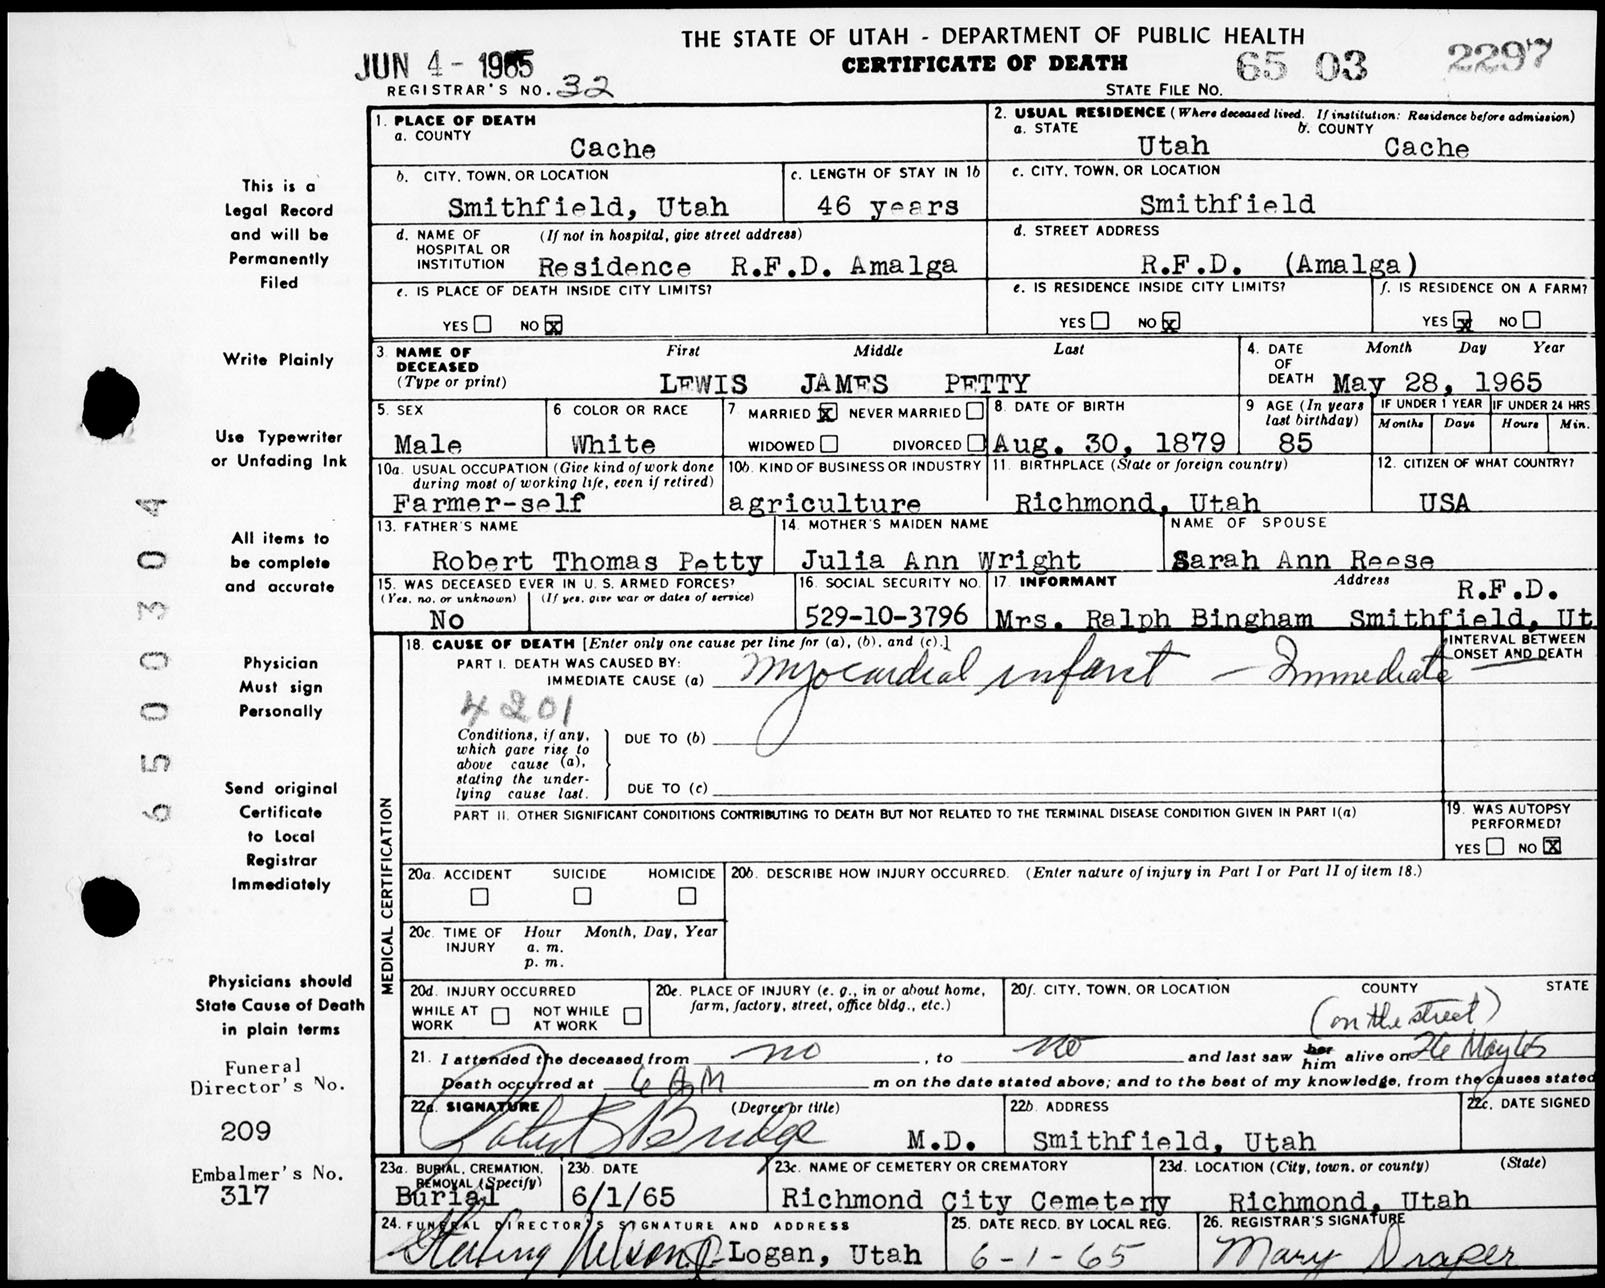 THE STATE OF UTAH - DEPARTMENT OF PUBLIC HEALTH
JUN 4 - 1965
CERTIFICATE OF DEATH
65 03 2297
REGISTRAR'S NO. 32
STATE FILE NO.
This is a
Legal Record
and will be
Permanently
Filed
Write Plainly
Use Typewriter
or Unfading Ink
All items to
be complete
and accurate
Physician
Must sign
Personally
Send original
Certificate
to Local
Registrar
Immediately
Physicians should
State Cause of Death
in plain terms
Funeral
Director's No.
209
Embalmer's No.
317
6500304
1. PLACE OF DEATH
a. COUNTY
Cache
2. USUAL RESIDENCE (Where deceased lived. If institution: Residence before admission)
a. STATE b. COUNTY
Utah Cache
b. CITY, TOWN, OR LOCATION
Smithfield, Utah
c. LENGTH OF STAY IN 1b
46 years
c. CITY, TOWN, OR LOCATION
Smithfield
d. NAME OF (If not in hospital, give street address)
HOSPITAL OR
INSTITUTION Residence R.F.D. Amalga
d. STREET ADDRESS
R.F.D. (Amalga)
e. IS PLACE OF DEATH INSIDE CITY LIMITS?
YES NO X
e. IS RESIDENCE INSIDE CITY LIMITS?
YES NO X
f. IS RESIDENCE ON A FARM?
YES X NO
3. NAME OF DECEASED (Type or print)
First Middle Last
LEWIS JAMES PETTY
4. DATE OF DEATH
Month Day Year
May 28, 1965
5. SEX
Male
6 COLOR OR RACE
White
7 MARRIED X NEVER MARRIED
WIDOWED DIVORCED
8. DATE OF BIRTH
Aug. 30, 1879
9 AGE (In years last birthday)
85
IF UNDER 1 YEAR
Months Days
IF UNDER 24 HRS
Hours Min.
10a. USUAL OCCUPATION (Give kind of work done
during most of working life, even if retired)
Farmer-self
10b. KIND OF BUSINESS OR INDUSTRY
agriculture
11. BIRTHPLACE (State or foreign country)
Richmond, Utah
12. CITIZEN OF WHAT COUNTRY?
USA
13. FATHER'S NAME
Robert Thomas Petty
14. MOTHER'S MAIDEN NAME
Julia Ann Wright
NAME OF SPOUSE
Sarah Ann Reese
15. WAS DECEASED EVER IN U. S. ARMED FORCES?
(Yes, no, or unknown) (If yes, give war or dates of service)
No
16. SOCIAL SECURITY NO.
529-10-3796
17. INFORMANT Address
R.F.D.
Mrs. Ralph Bingham Smithfield, Ut
18. CAUSE OF DEATH [Enter only one cause per line for (a), (b), and (c).]
PART I. DEATH WAS CAUSED BY:
IMMEDIATE CAUSE (a) Myocardial infarct — Immediate
INTERVAL BETWEEN
ONSET AND DEATH
4201
Conditions, if any,
which gave rise to
above cause (a),
stating the under-
lying cause last.
DUE TO (b)
DUE TO (c)
PART II. OTHER SIGNIFICANT CONDITIONS CONTRIBUTING TO DEATH BUT NOT RELATED TO THE TERMINAL DISEASE CONDITION GIVEN IN PART I(a)
19. WAS AUTOPSY
PERFORMED?
YES NO X
MEDICAL CERTIFICATION
20a. ACCIDENT SUICIDE HOMICIDE
20b. DESCRIBE HOW INJURY OCCURRED. (Enter nature of injury in Part I or Part II of item 18.)
20c. TIME OF INJURY
Hour Month, Day, Year
a. m.
p. m.
20d. INJURY OCCURRED
WHILE AT WORK NOT WHILE AT WORK
20e. PLACE OF INJURY (e. g., in or about home,
farm, factory, street, office bldg., etc.)
20f. CITY, TOWN, OR LOCATION COUNTY STATE
(on the street)
21. I attended the deceased from no, to no and last saw her him alive on 26 May 65
Death occurred at 6 AM m on the date stated above; and to the best of my knowledge, from the causes stated
22a. SIGNATURE (Degree or title)
Budge M.D.
22b. ADDRESS
Smithfield, Utah
22c. DATE SIGNED
23a. BURIAL, CREMATION,
REMOVAL (Specify)
Burial
23b. DATE
6/1/65
23c. NAME OF CEMETERY OR CREMATORY
Richmond City Cemetery
23d. LOCATION (City, town, or county) (State)
Richmond, Utah
24. FUNERAL DIRECTOR'S SIGNATURE AND ADDRESS
Sterling Nelson Logan, Utah
25. DATE RECD. BY LOCAL REG.
6-1-65
26. REGISTRAR'S SIGNATURE
Mary Draper